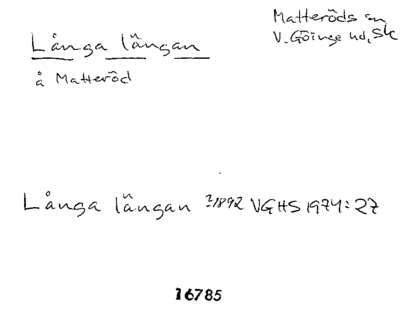 Långa längan
å Matteröd
Matteröds sn
V. Göinge hd, Sk
Långa längan ?1892 VGHS 1974:27
16785